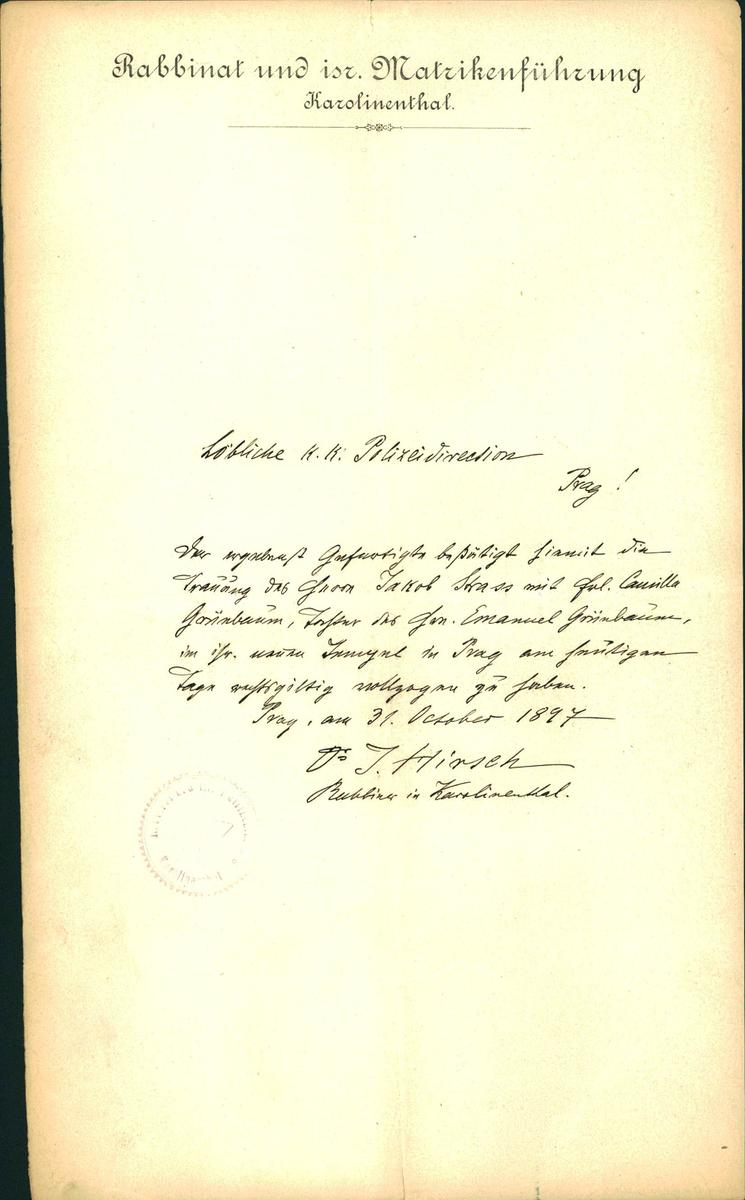 Rabbinat und isr. Matrikenführung
Karolinenthal.
Löbliche K. K. Polizeidirection
Prag!
Der ergebenst Gefertigte bestätigt hiemit die
Trauung des Herrn Jakob Strass mit Frl. Camilla
Grünbaum, Tochter des Hrn. Emanuel Grünbaum,
im isr. neuen Tempel in Prag am heutigen
Tage rechtsgiltig vollzogen zu haben.
Prag, am 31. October 1897
Dr J. Hirsch
Rabbiner in Karolinenthal.